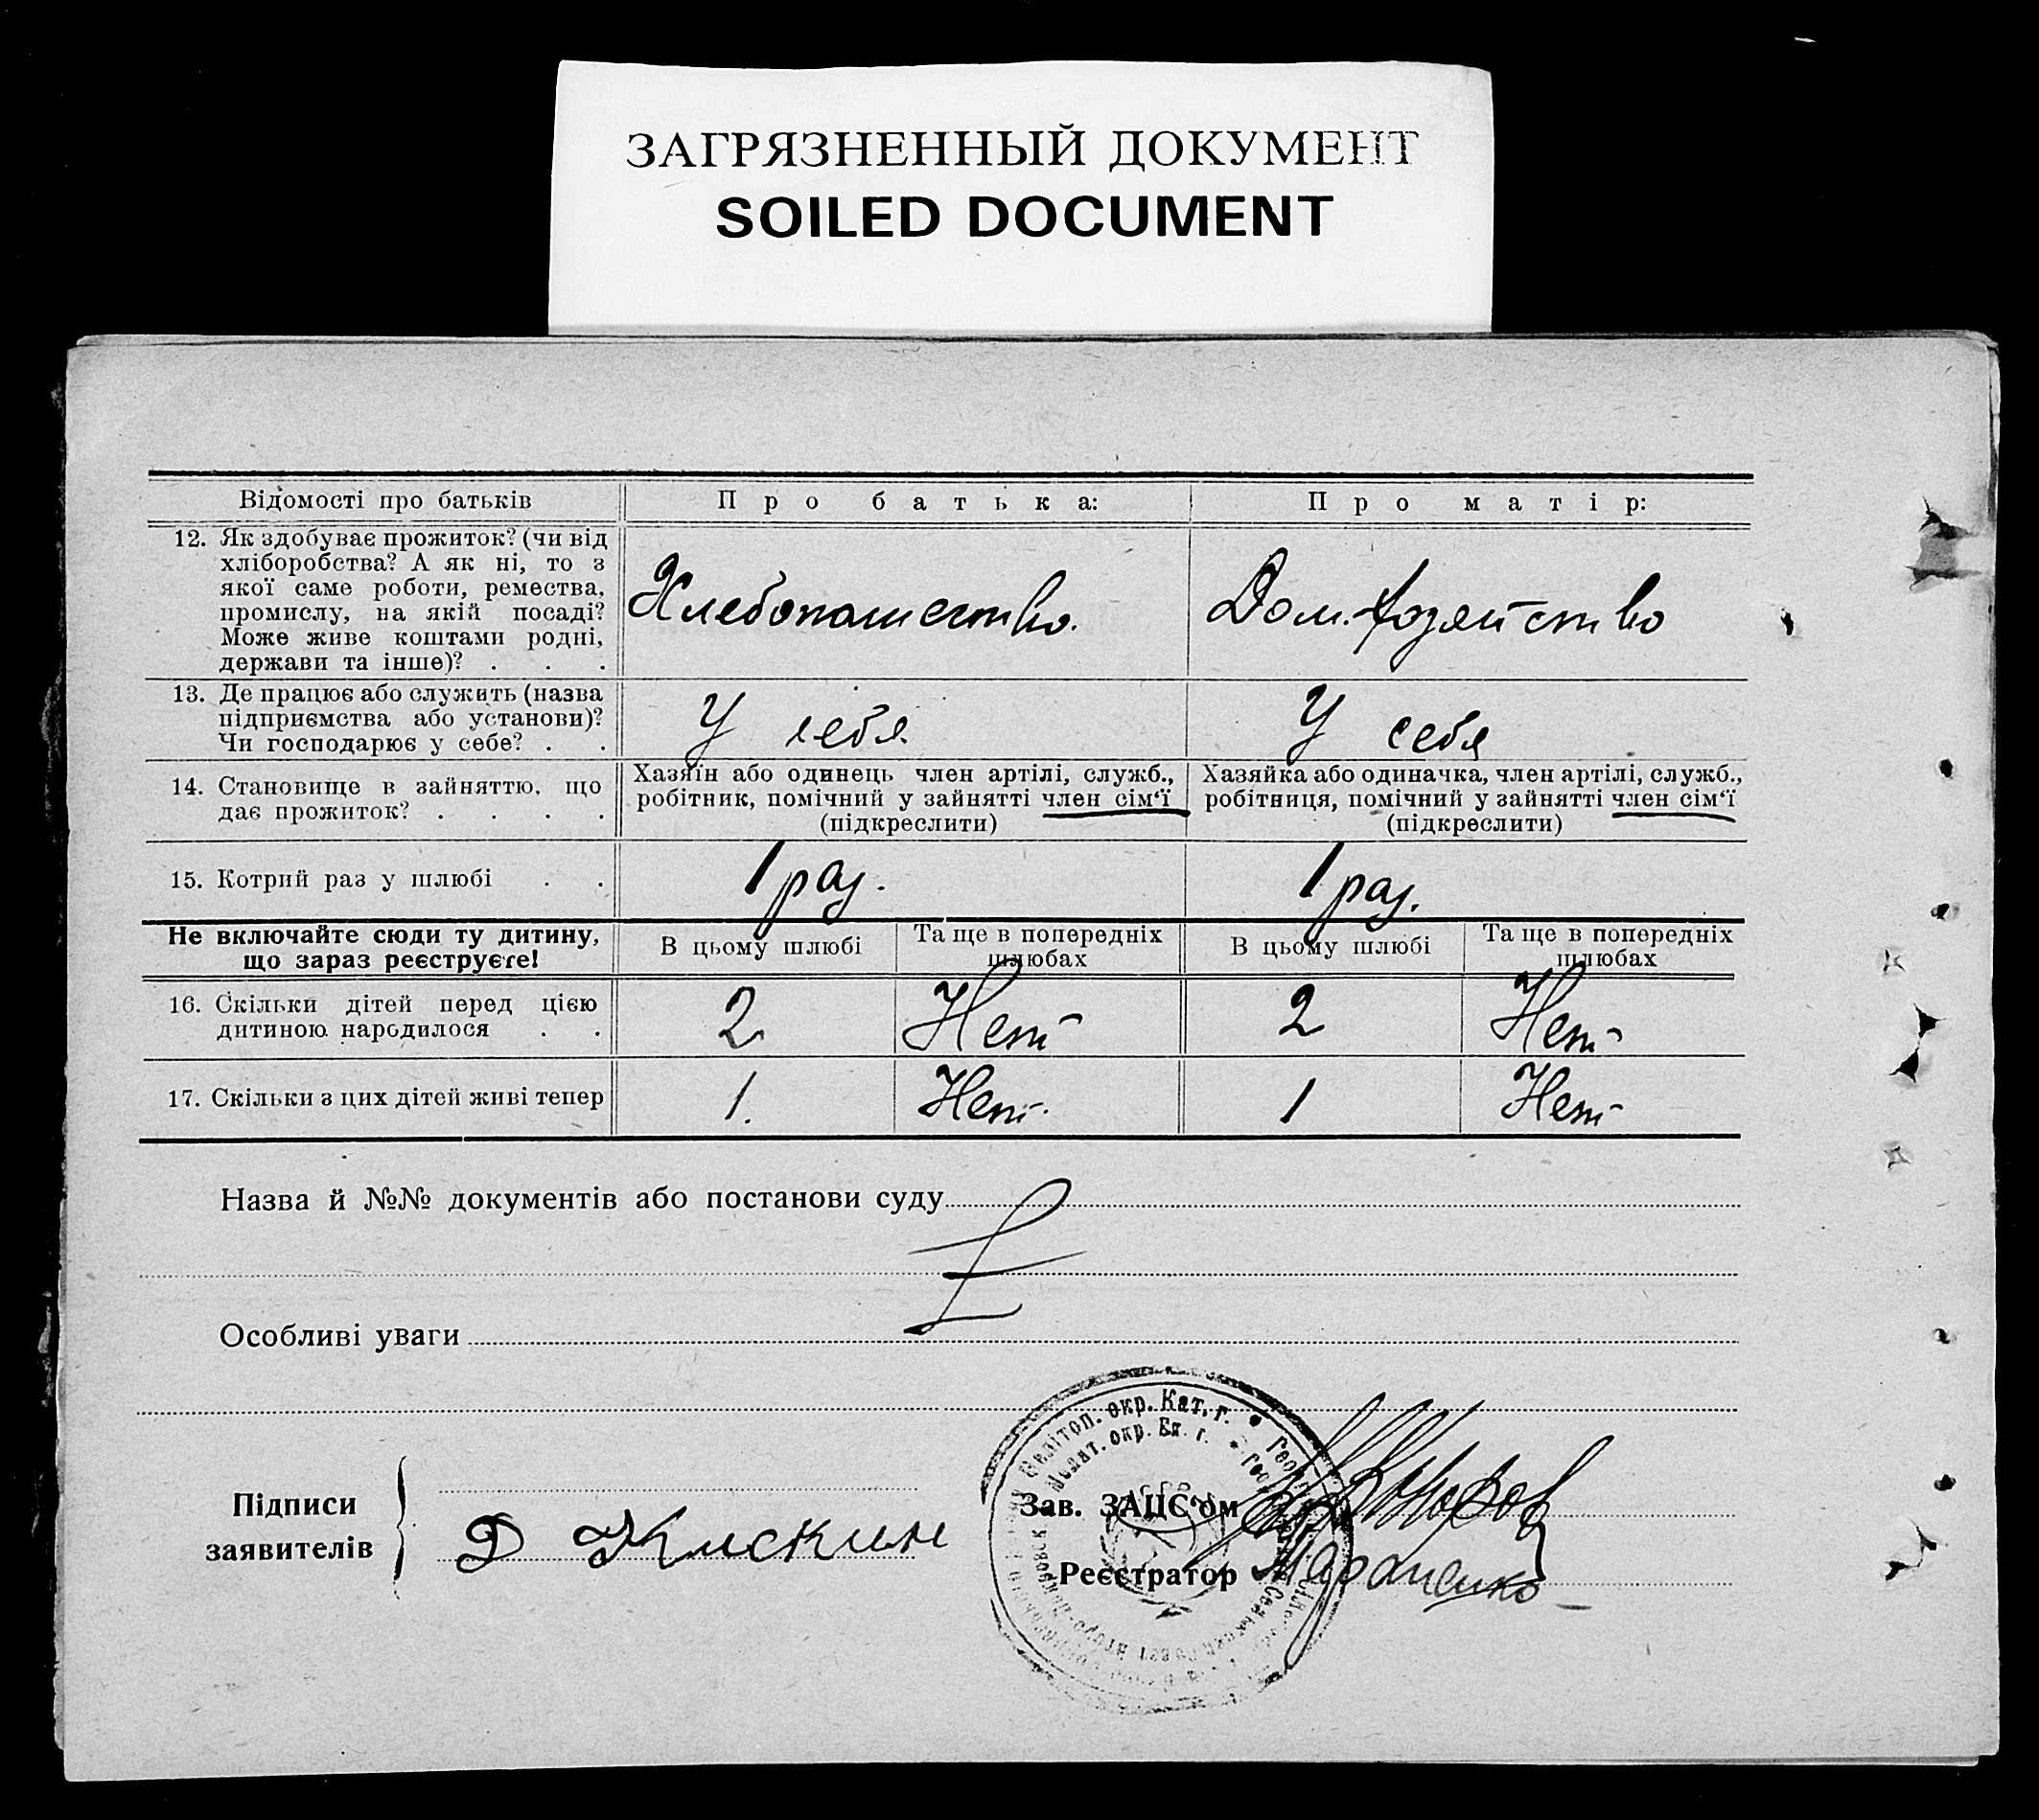 ЗАГРЯЗНЕННЫЙ ДОКУМЕНТ
SOILED DOCUMENT
Відомості про батьків
Про батька:
Про матір:
12. Як здобуває прожиток? (чи від
хліборобства? А як ні, то з
якої саме роботи, ремества,
промислу, на якій посаді?
Може живе коштами родні,
держави та інше)? . . .
Хлебопашество.
Дом. хозяйство
13. Де працює або служить (назва
підприємства або установи)?
Чи господарює у себе? . .
У себя
У себя
14. Становище в зайняттю, що
дає прожиток? . . . .
Хазяїн або одинець член артілі, служб.,
робітник, помічний у зайнятті член сім‘ї
(підкреслити)
Хазяйка або одиначка, член артілі, служб.,
робітниця, помічний у зайнятті член сім‘ї
(підкреслити)
15. Котрий раз у шлюбі . .
1 раз.
1 раз.
Не включайте сюди ту дитину,
що зараз реєструєте!
В цьому шлюбі
Та ще в попередніх
шлюбах
В цьому шлюбі
Та ще в попередніх
шлюбах
16. Скільки дітей перед цією
дитиною народилося . .
2
Нет
2
Нет
17. Скільки з цих дітей живі тепер
1.
Нет.
1
Нет
Назва й №№ документів або постанови суду
Особливі уваги
Підписи
заявителів
Д Кискин
Мелітоп. окр. Кат. г.
Мелит. окр. Ек. г.
Зав. ЗАЦС‘ом
Реєстратор